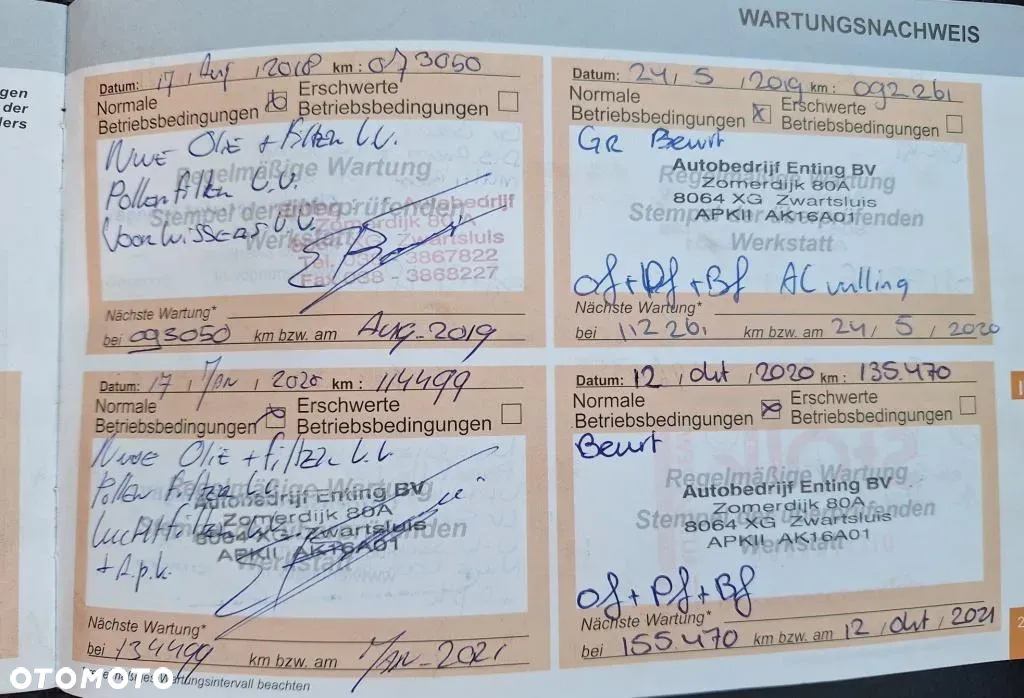 WARTUNGSNACHWEIS
gen
der
ders
Datum: 17, Aug, 2018 km: 073050
Normale Betriebsbedingungen
Erschwerte Betriebsbedingungen
Nwe Olie + filter V.V.
Regelmäßige Wartung
Pollenfilter V.V.
Stempel der überprüfenden
Autobedrijf
Voorwissers V.V.
Werkstatt
Zwartsluis
Tel. 038 - 3867822
Fax 038 - 3868227
Nächste Wartung*
bei 093050 km bzw. am Aug-2019
Datum: 24, 5, 2019 km: 092261
Normale Betriebsbedingungen X
Erschwerte Betriebsbedingungen
GR Beurt
Autobedrijf Enting BV
Regelmäßige Wartung
Zomerdijk 80A
8064 XG Zwartsluis
APKII AK16A01
Werkstatt
of + Pf + Bf AC vulling
Nächste Wartung*
bei 112261 km bzw. am 24, 5, 2020
Datum: 17, Jan, 2020 km: 114499
Normale Betriebsbedingungen
Erschwerte Betriebsbedingungen
Nwe Olie + filter V.V.
Pollen filter V.V.
Autobedrijf Enting BV
Zomerdijk 80A
Luchtfilter
8064 XG Zwartsluis
APKII AK16A01
+ A.p.k.
Werkstatt
Nächste Wartung*
bei 134499 km bzw. am Jan-2021
Wartungsintervall beachten
Datum: 12, okt, 2020 km: 135.470
Normale Betriebsbedingungen X
Erschwerte Betriebsbedingungen
Beurt
Regelmäßige Wartung
Autobedrijf Enting BV
Zomerdijk 80A
8064 XG Zwartsluis
APKII AK16A01
Werkstatt
of + Pf + Bf
Nächste Wartung*
bei 155.470 km bzw. am 12, okt, 2021
OTOMOTO